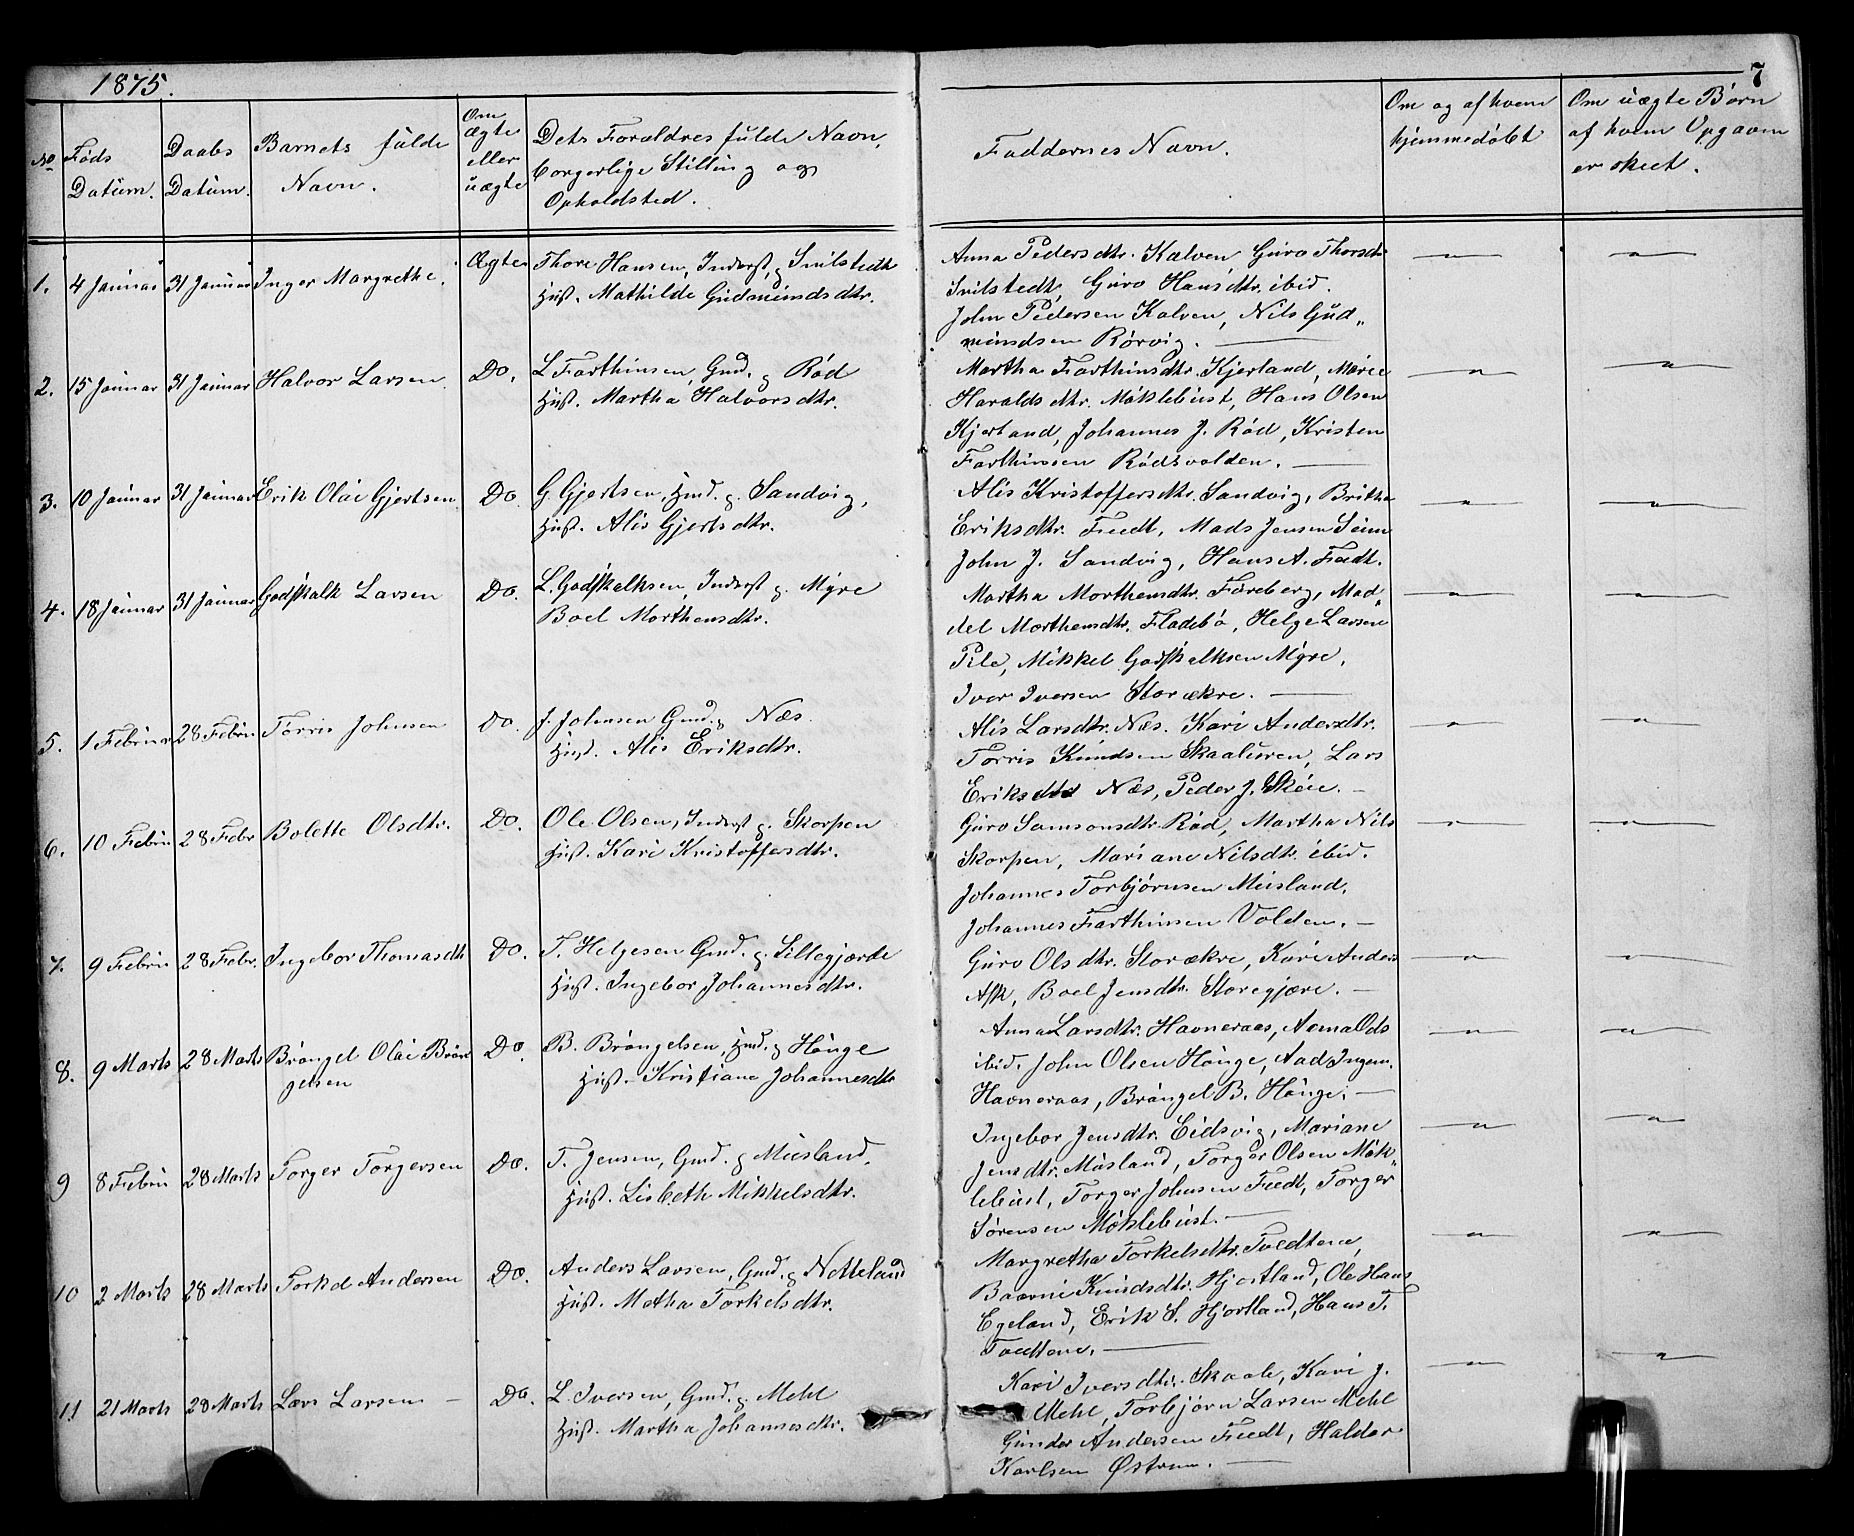 1875.
7
No
Føds Datum.
Daabs Datum.
Barnets fulde Navn.
Om ægte eller uægte
Dets Foraldres fulde Navn, borgerlige Stilling og Opholdsted.
Faddernes Navn.
Om og af hvem hjemmedøbt
Om uægte Børn af hvem Opgaven er skeet.
1. 4 Januar 31 Januar Inger Margrethe. Ægte Thore Hansen, Inderst, g Snilstedt
Hust. Mathilde Gudmundsdtr.
Anna Pedersdtr. Kalven Guro Thorsdtr
Snilstedt, Guro Hansdtr. ibid.
John Pedersen Kalven, Nils Gud„
mundsen Rørvig. —
2. 15 Januar 31 Januar Halvor Larsen. Do. L Farthinsen, Gmd. g Rød
Hust. Martha Halvorsdtr.
Martha Farthinsdtr. Kjerland, Marie
Haraldsdtr. Møklebust, Hans Olsen
Kjerland, Johannes J. Rød, Kristen
Farthinsen Rødsvolden. —
3. 10 Januar 31 Januar Erik Olai Gjertsen Do. G. Gjertsen, Hmd. g. Sandvig,
Hust. Alis Gjertsdtr.
Alis Kristoffersdtr. Sandvig, Britha
Eriksdtr. Tvedt, Mads Jensen Seim
John J. Sandvig, Hans A. Tvedt.
4. 18 Januar 31 Januar Godskalk Larsen Do. L. Godskalksen, Inderst g. Myre
Boel Morthensdtr.
Martha Morthensdtr. Føreberg, Mad„
del Morthensdtr. Fladebø, Helge Larsen
Pile, Mikkel Godskalksen Myre,
Iver Iversen Storækre. —
5. 1 Februar 28 Febru Tørris Johnsen Do. J. Johnsen Gmd. g Næs.
Hust. Alis Eriksdtr.
Alis Larsdtr. Næs. Kari Andersdtr.
Tørris Knudsen Skaaluren, Lars
Næs, Peder J. Skeie. —
6. 10 Febru 28 Febr Bolette Olsdtr. Do. Ole Olsen, Inderst g. Skorpen
Hust. Kari Kristoffersdtr.
Guro Samsonsdtr. Rød, Martha Nils
Skorpen, Mariane Nilsdtr. ibid.
Johannes Torbjørnsen Musland,
Johannes Farthinsen Volden. —
7. 9 Febru 28 Febr. Ingebor Thomasdtr Do. T. Helgesen Gmd. g. Lillegjærde
Hust. Ingebor Johannesdtr.
Guro Olsdtr. Storækre, Kari Anders
Ask, Boel Jensdtr. Storegjære. —
8. 9 Marts 28 Marts Brøngel Olai Brøn
gelsen Do. B. Brøngelsen, Hmd. g Hønge
Hust. Kristiane Johannesdtr
Anna Larsdtr. Havneraas, Anna Ods
ibid. John Olsen Hønge, Aad Ingem.
Havneraas, Brøngel B. Hønge. —
9 8 Febru 28 Marts Torger Torgersen Do. T. Jensen, Gmd. g Musland,
Hust. Lisbeth Mikkelsdtr.
Ingebor Jensdtr. Eidsvig, Mariane
Jensdtr. Musland, Torger Olsen Møk„
lebust, Torger Johnsen Tvedt, Torger
Sørensen Møklebust. —
10 2 Marts 28 Marts Torkel Andersen Do. Anders Larsen, Gmd. g Netteland
Hust. Metha Torkelsdtr.
Margretha Torkelsdtr. Tvedtene,
Knudsdtr. Hjortland, Ole Hans
Egeland, Erik S. Hjortland, Hans T.
Tvedtene. —
11 21 Marts 28 Marts Lars Larsen — Do. L. Iversen, Gmd. g Mehl
Hust. Martha Johannesdtr.
Kari Iversdtr. Skaale, Kari J.
Mehl, Torbjørn Larsen Mehl
Gunder Andersen Tvedt, Haldor
Karlsen Østrem. —